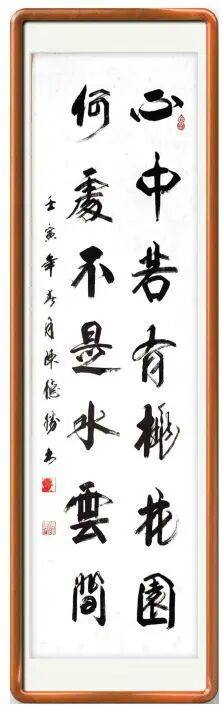 心中若有桃花園
何處不是水雲間
壬寅年春月陳德勝書